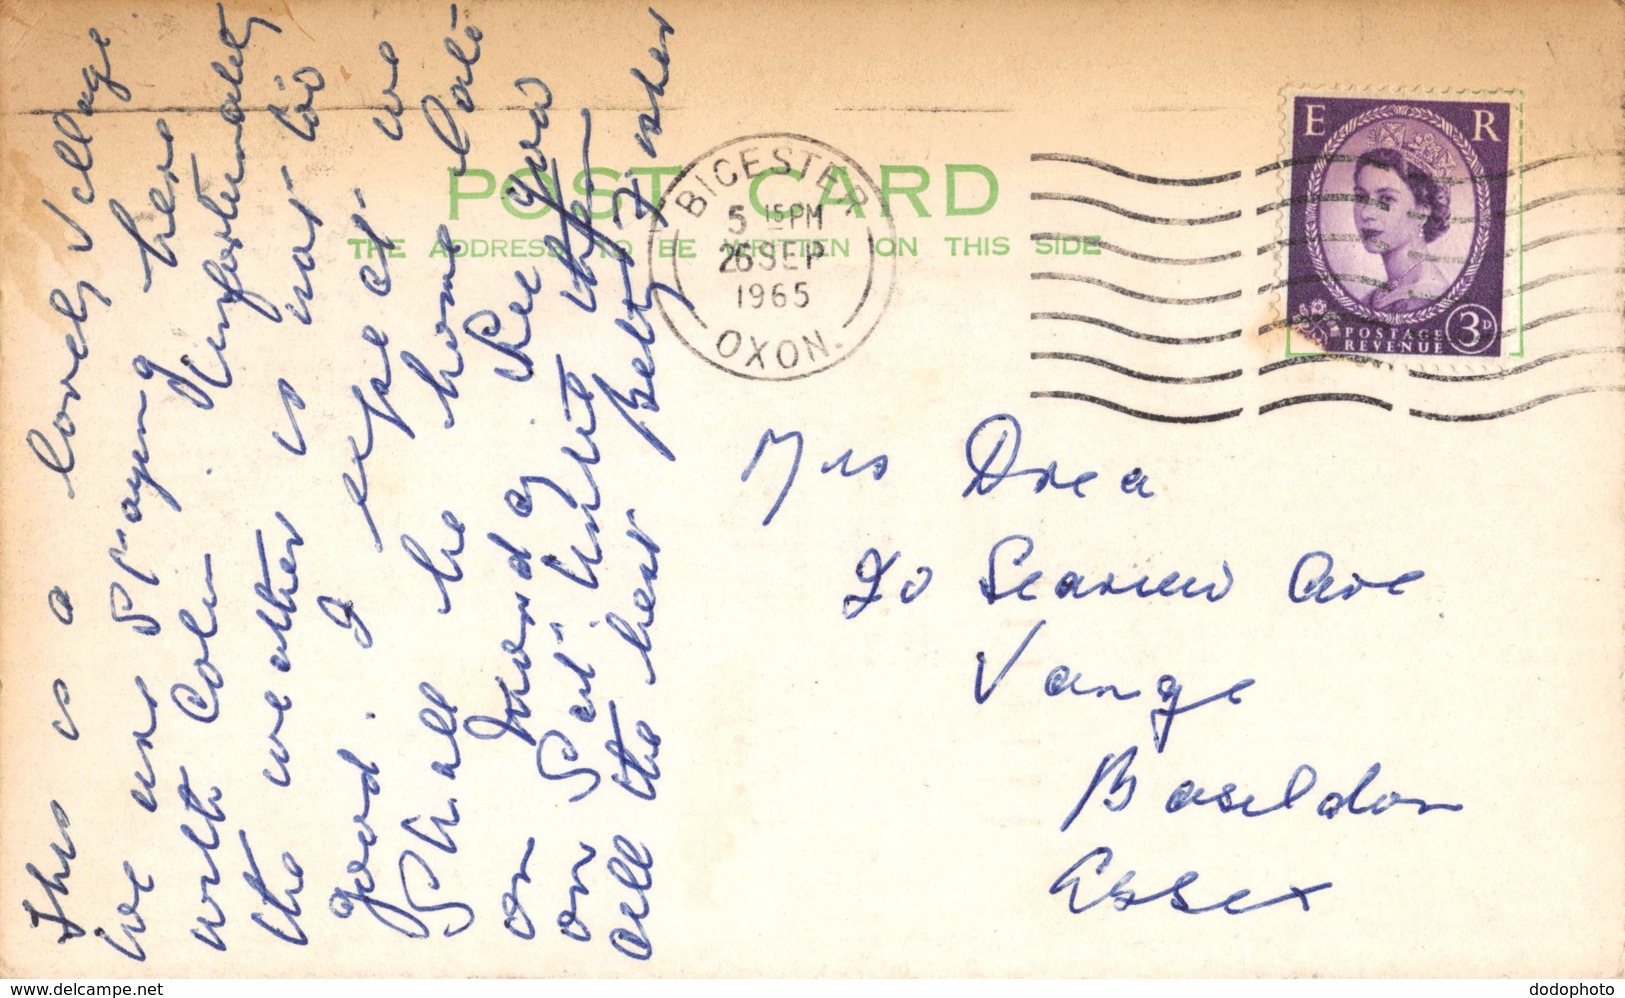 This is a lovely village
we are staying here
with Colin. Unfortunately
the weather is not too
good. I expect we
shall be home late
on Monday. See you
on Sat. Until then
all the best Betty
POST CARD
THE ADDRESS TO BE WRITTEN ON THIS SIDE
BICESTER
5 15 PM
26 SEP
1965
OXON.
E R
POSTAGE
REVENUE
3D
Mrs
Seaview Ave
Vange
Basildon
Essex
www.delcampe.net
dodophoto